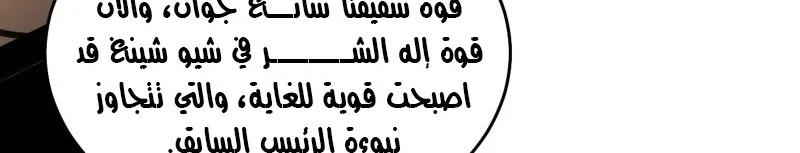 قوة شقيقنا سانـــغ جوان، والآن
قوة إله الشـــــــر في شيو شينغ قد
اصبحت قوية للغاية، والتي تتجاوز
نبوءة الرئيس السابق.